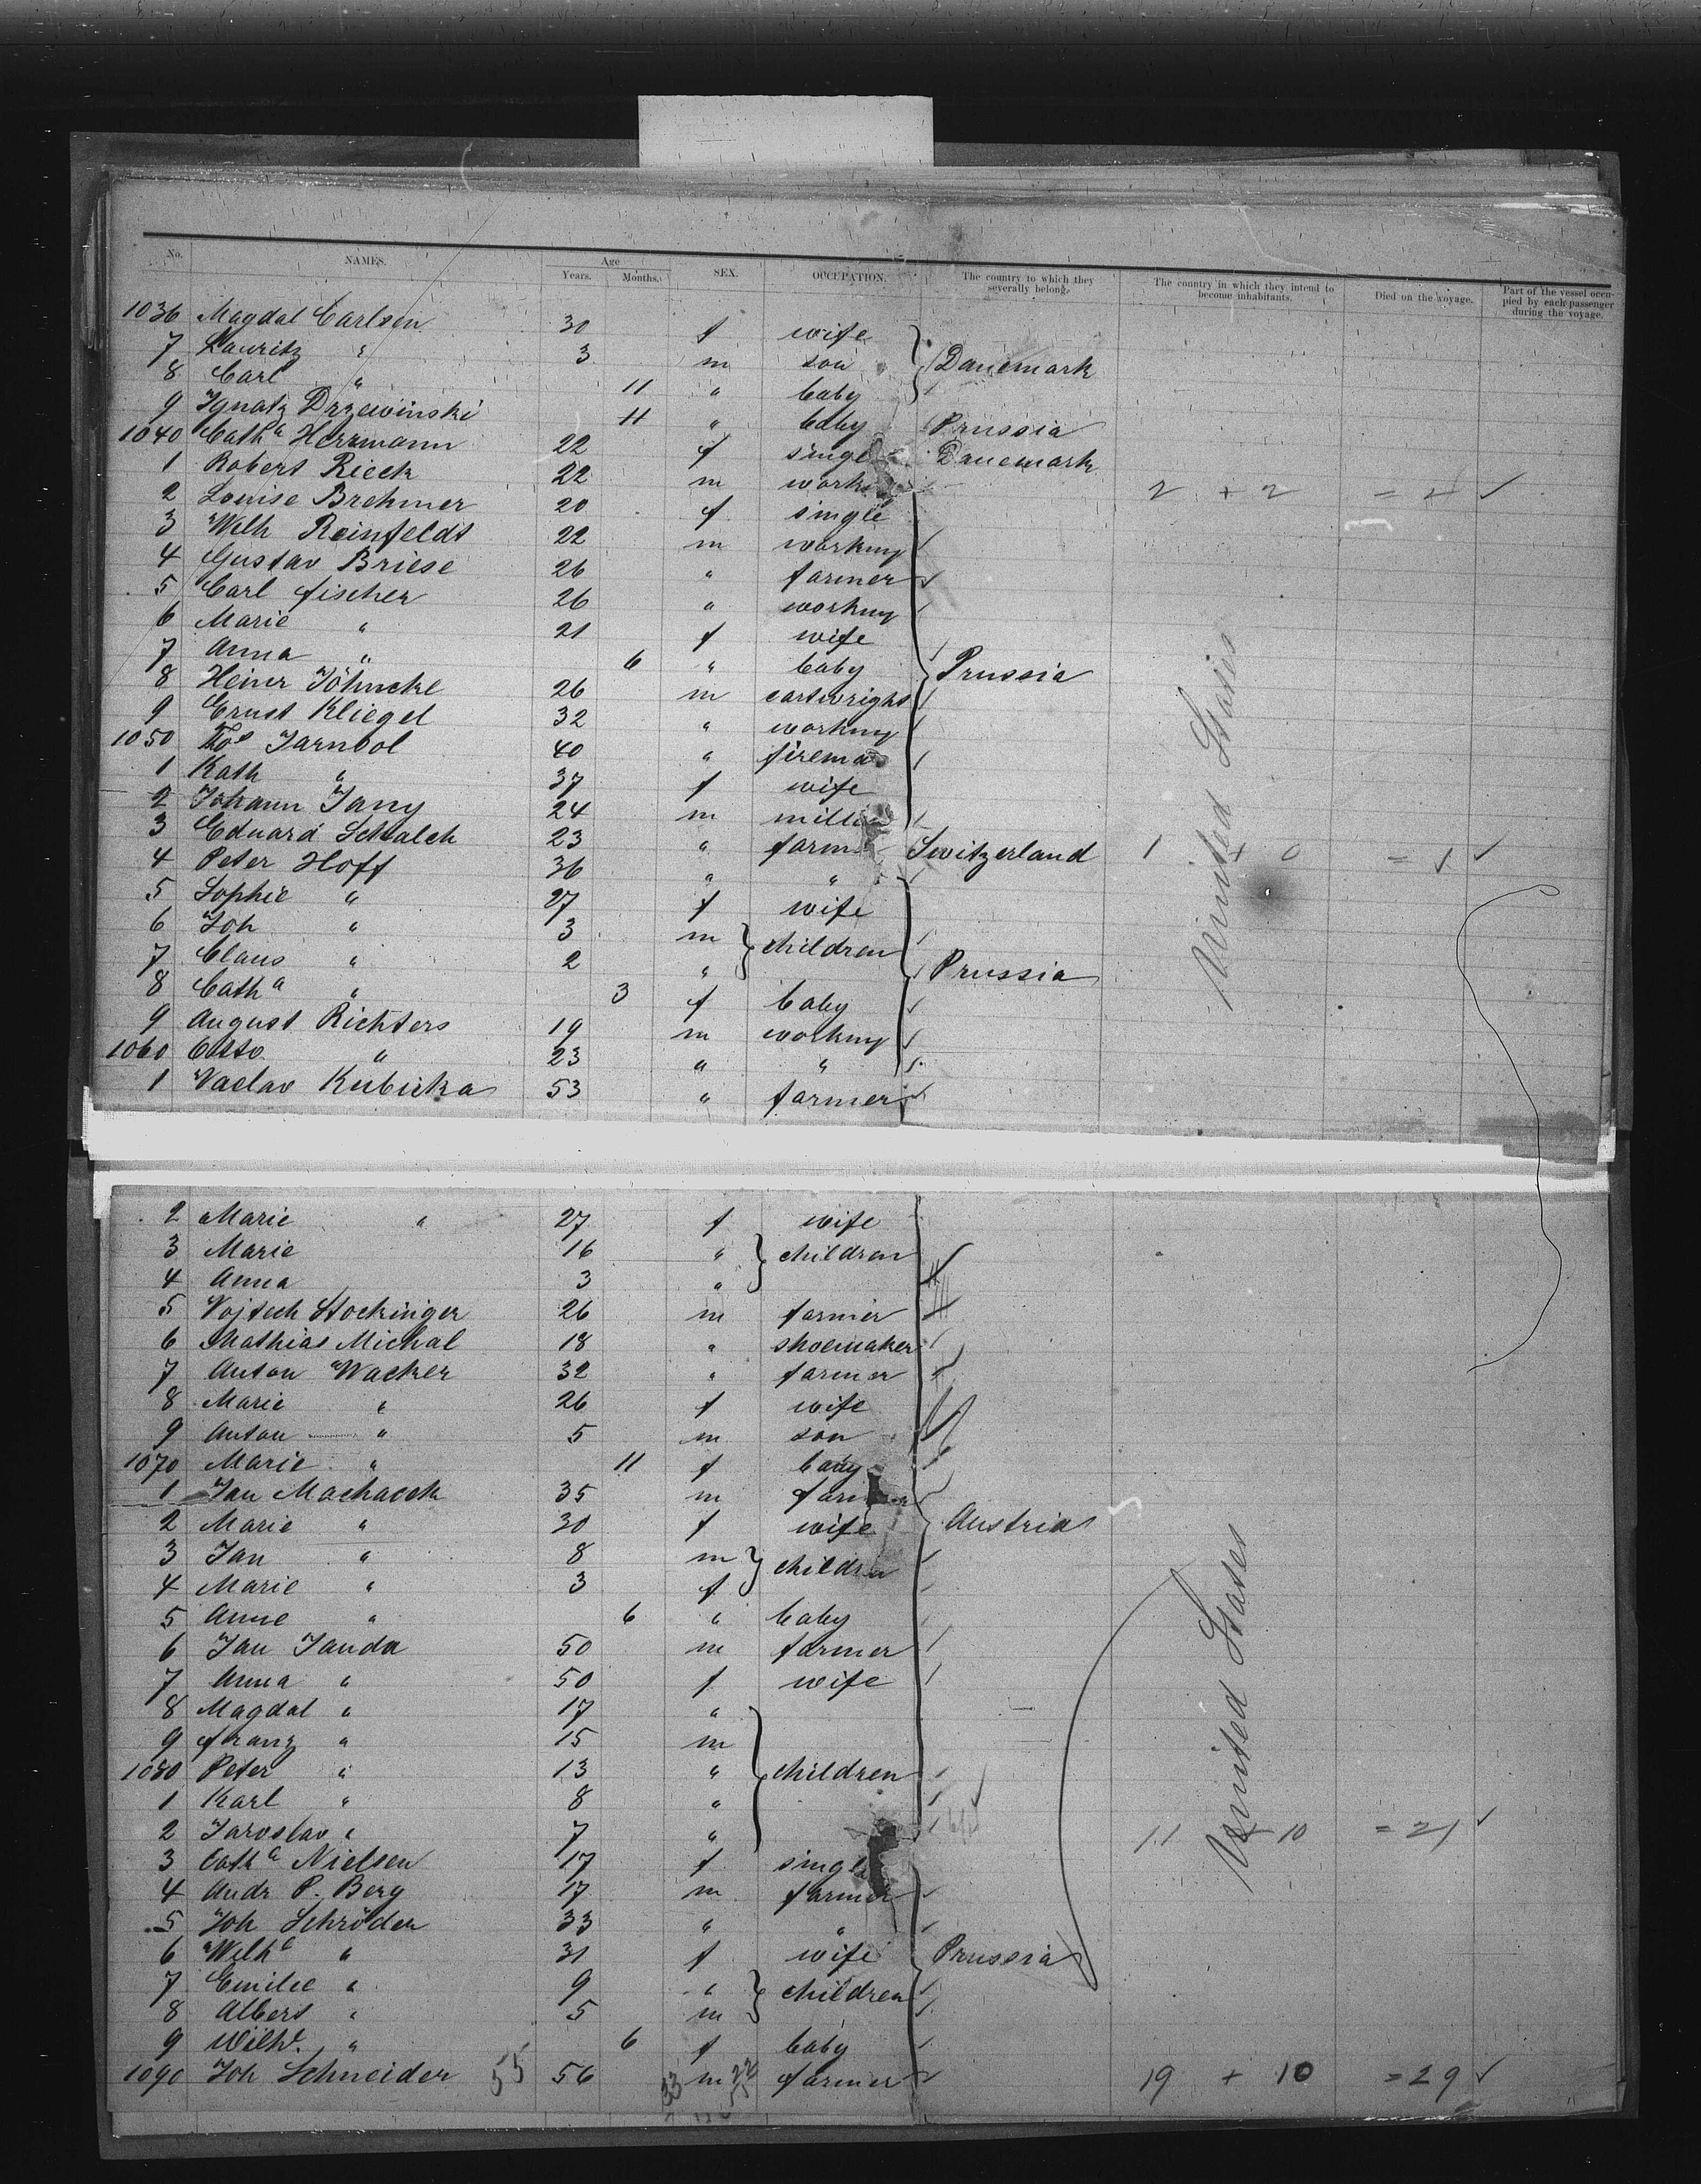 No. NAMES. Age Years. Months. SEX. OCCUPATION. The country to which they severally belong. The country in which they intend to become inhabitants. Died on the voyage. Part of the vessel occupied by each passenger during the voyage.
1036 Magdal Carlsen 30 f wife
7 Lauritz " 3 m son Danemark
8 Carl " 11 " baby
9 Ignatz Drzewinski 11 " baby Prussia
1040 Cath a Herrmann 22 f singl Danemark
1 Robert Rieck 22 m work 2 + 2 = 4 ✓
2 Louise Brehmer 20 f single
3 Wilh Reinfeldt 22 m working
4 Gustav Briese 26 " farmer
5 Carl Fischer 26 " working
6 Marie " 21 f wife
7 Anna " 6 " baby Prussia
8 Heinr Jöhncke 26 m cartwright
9 Ernst Kliegel 32 " working
1050 Jarnbol 40 " firema
1 Kath " 37 f wife
2 Johann Jany 24 m mille
3 Eduard Schalch 23 " farm Switzerland 1 + 0 = 1 ✓
4 Peter Hoff 36 " "
5 Sophie " 27 f wife
6 Joh " 3 m children
7 Claus " 2 " Prussia
8 Cath a " 3 f baby
9 August Richters 19 m working
1060 Otto " 23 " "
1 Vaclav Kubicka 53 " farmer
United States
2 Marie " 27 f wife
3 Marie 16 " children
4 Anna 3 "
5 Vojtech Stockinger 26 m farmer
6 Mathias Michal 18 " shoemaker
7 Anton Wacker 32 " farmer
8 Marie " 26 f wife
9 Anton " 5 m son
1070 Marie " 11 f baby
1 Jan Machacek 35 m farm
2 Marie " 30 f wife Austria
3 Jan " 8 m children
4 Marie " 3 f
5 Anne " 6 " baby
6 Jan Janda 50 m farmer
7 Anna " 50 f wife
8 Magdal " 17 "
9 Franz " 15 m
1080 Peter " 13 " children
1 Karl " 8 "
2 Jaroslav " 7 " 11 + 10 = 21 ✓
3 Cath a Nielsen 17 f singl
4 Andr P. Berg 17 m farmer
5 Joh Schröder 33 " "
6 Wilh e " 31 f wife Prussia
7 Emilie " 9 " children
8 Albert " 5 m
9 Wilh. " 6 f baby
1090 Joh Schneider 55 56 33 m 22 farmer 19 + 10 = 29 ✓
United States